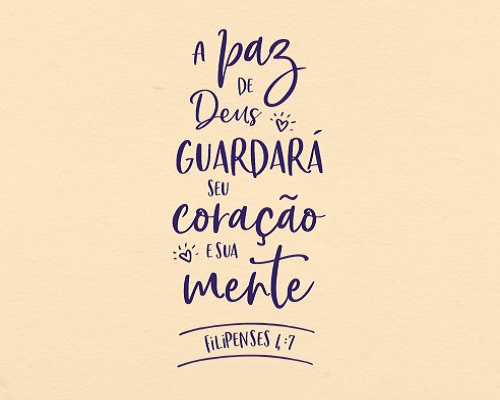 A paz
DE
Deus
GUARDARÁ
SEU
coração
E SUA
mente
FILIPENSES 4:7